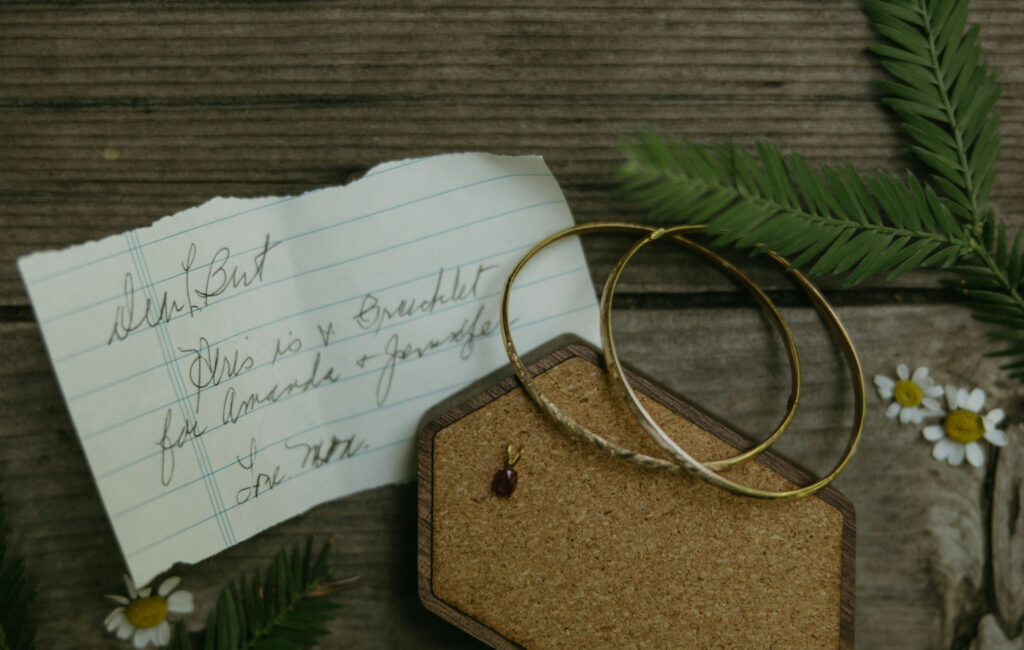 Dear Burt
This is a Brachlet
for Amanda + Jennifer
Love. Mom.